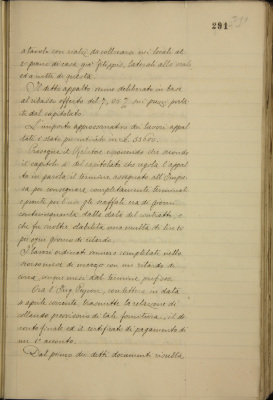 291
a tavole con
2° piano di casa già Filippi, laterali alle scale
ed a metà di questa.
Il detto appalto venne deliberato in base
al ribasso offerto del 7, % sui prezzi porta
ti dal capitolato.
L'importo approssimativo dei lavori appal
tati è stato preventivato in L. 33600.
Prosegue il Relatore esponendo che secondo
il capitolo 2° del capitolato che regola l'appal
to in parola il termine assegnato all'Impre
sa per consegnare completamente terminati
e pronti per l'uso gli scaffali era di giorni
dalla data del contratto, e
che fu inoltre stabilita una multa di lire 10
per ogni giorno di ritardo.
I lavori ordinati vennero completati nello
scorso mese di marzo con un ritardo di
circa cinque mesi dal termine prefisso.
Ora l'Ing. con lettera in data
aprile corrente trasmette la relazione di
collaudo provvisorio di tale fornitura, il
conto finale ed il certificato di pagamento di
un 1° acconto.
Dal primo dei detti documenti risulta